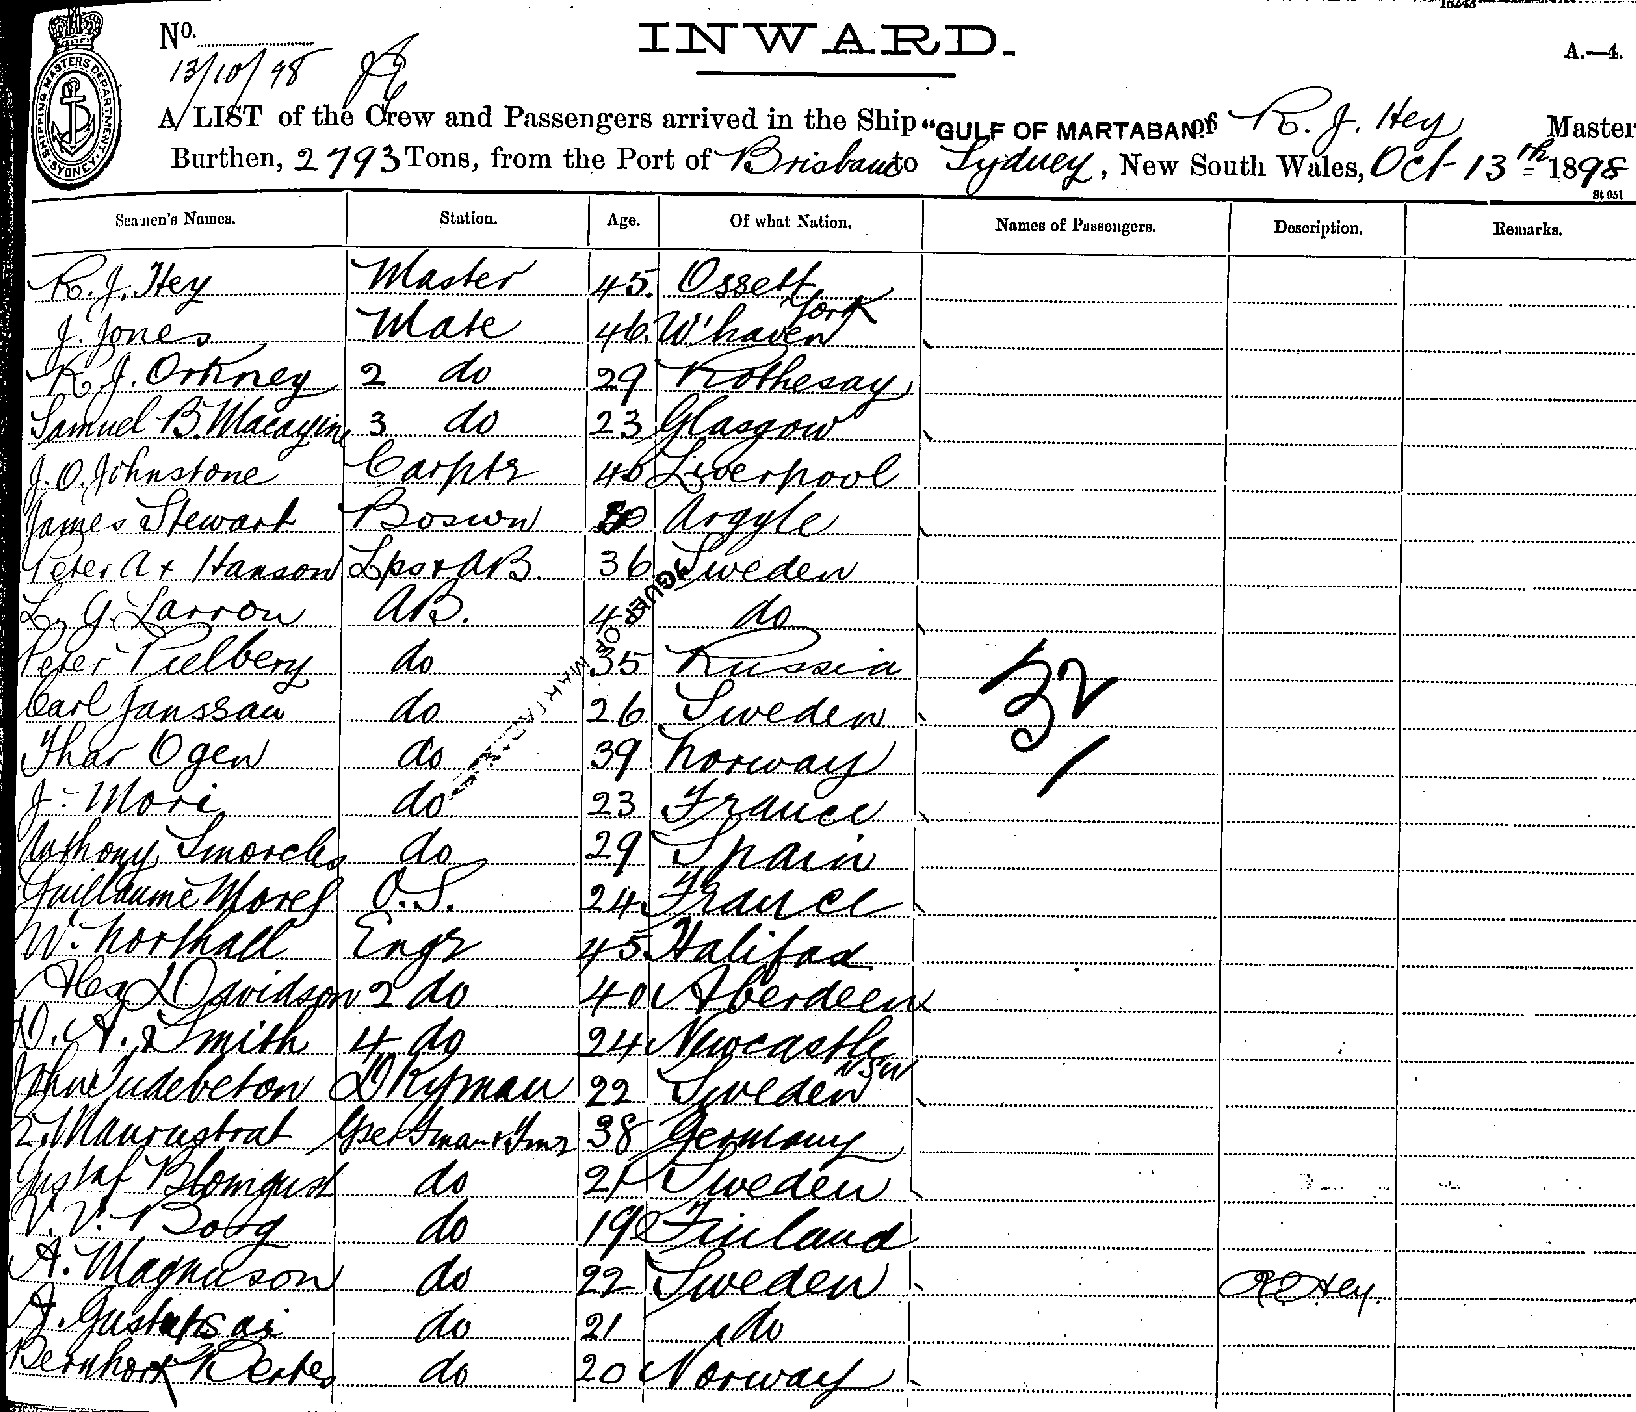 No.
INWARD.
A.—4.
13/10/98
A LIST of the Crew and Passengers arrived in the Ship "GULF OF MARTABAN" of R. J. Hey Master
Burthen, 2793 Tons, from the Port of Brisbane to Sydney, New South Wales, Oct 13th 1898
SHIPPING MASTERS DEPARTMENT SYDNEY
Seamen's Names. Station. Age. Of what Nation. Names of Passengers. Description. Remarks.
R. J. Hey Master 45. Ossett York
J. Jones Mate 46. W'haven
R J. Orkney 2 do 29 Rothesay
Samuel B. 3 do 23 Glasgow
J. O. Johnstone Carptr 40 Liverpool
James Stewart Boswn Argyle
Peter A + Hanson Lps + AB. 36 Sweden
L. G. Larron AB. do
Peter Pielbery do 35 Russia
Carl Janssau do 26 Sweden
32
Thar Ogen do 39 Norway
J. Mori do 23 France
Anthony do 29 Spain
Guillaume Moref O.S. 24 France
W. Northall Engr 45. Halifax
Davidson 2 do 40 Aberdeen
D. A. Smith 4 do 24 Newcastle NSW
John Dkyman 22 Sweden
38 Germany
Gustaf Blomqust do 21 Sweden
V. V. Borg do 19 Finland
A. Magnuson do 22 Sweden R J Hey.
A. do 21 do
do 20 Norway